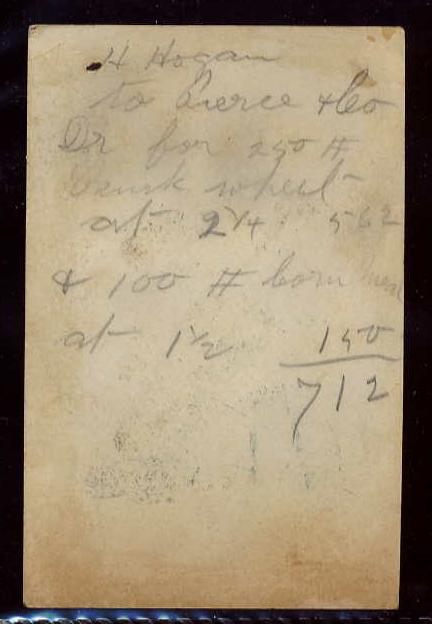 H Hogan
to Pierce & Co
Dr for 250 #
wheat
at 2 1/4 562
& 100 # Corn
at 1 1/2 150
712